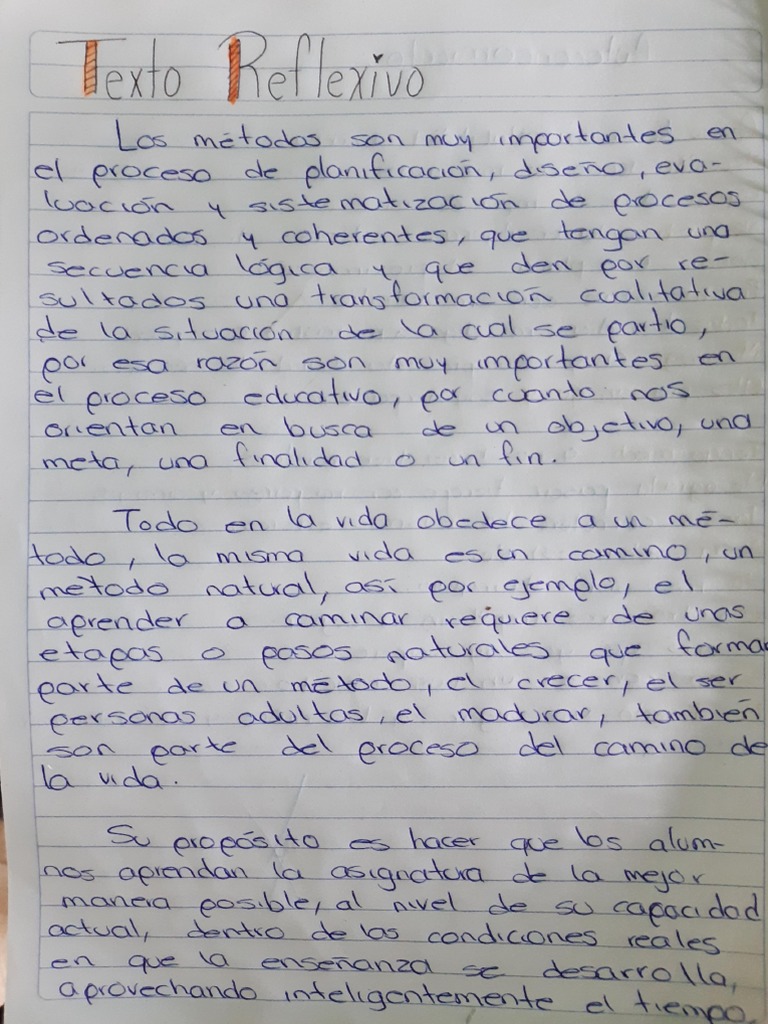 Texto Reflexivo
Los métodos son muy importantes en
el proceso de planificación, diseño, eva-
luación y sistematización de procesos
ordenados y coherentes, que tengan una
secuencia lógica y que den por re-
sultados una transformación cualitativa
de la situación de la cual se partio,
por esa razón son muy importantes en
el proceso educativo, por cuanto nos
orientan en busca de un objetivo, una
meta, una finalidad o un fin.
Todo en la vida obedece a un mé-
todo, la misma vida es un camino, un
método natural, así por ejemplo, el
aprender a caminar requiere de unas
etapas o pasos naturales que forma
parte de un método, el crecer, el ser
personas adultas, el madurar, también
son parte del proceso del camino de
la vida.
Su propósito es hacer que los alum-
nos aprendan la asignatura de la mejor
manera posible, al nivel de su capacidad
actual, dentro de las condiciones reales
en que la enseñanza se desarrolla,
aprovechando inteligentemente el tiempo,